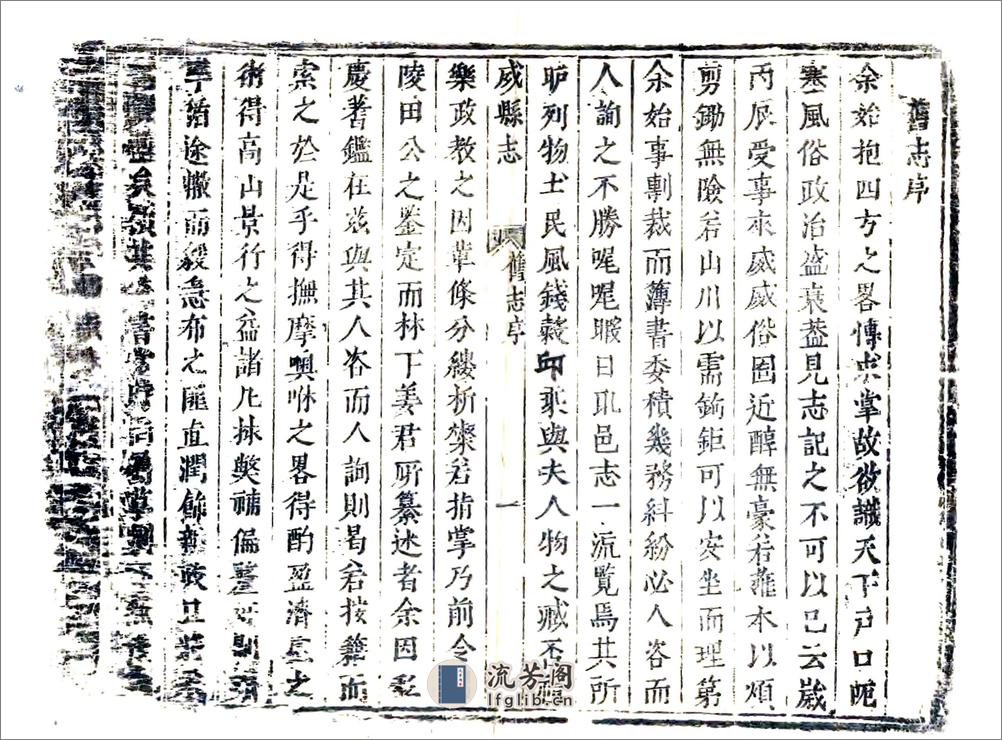 舊志序
余始抱四方之畧博求掌故欲識天下戶口阨
塞風俗政治盛衰葢見志記之不可以已云歲
丙辰受事來威威俗固近醇無豪若蓷本以煩
剪鋤無險若山川以需鉤鉅可以安坐而理第
余始事剸裁而簿書委積幾務糾紛必人咨而
人詢之不勝喔喔暇日取邑志一流覽焉其所
臚列物土民風錢穀邱乘與夫人物之臧否
威縣志
舊志序
一
樂政教之因革條分縷析燦若指掌乃前令
陵田公之鉴定而林下姜君所纂述者余因私
慶蓍鑑在玆與其人咨而人詢則曷若按籍而
索之於是乎得撫摩噢咻之畧得酌盈濟虛之
術得高山景行之益諸凡捄獘補偏
循途轍而毅急布之匪直潤餙
流芳閣
lfglib.cn